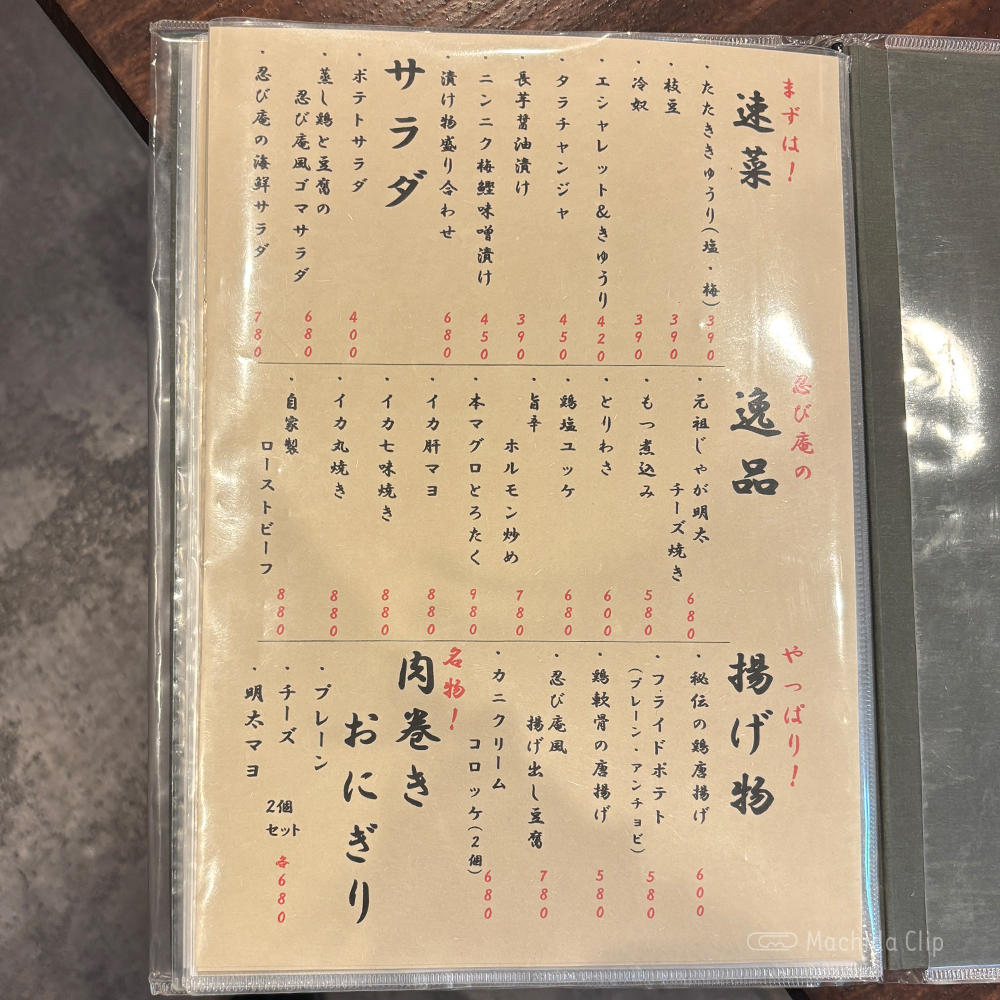 まずは！
速菜
・たたききゅうり(塩・梅) 390
・枝豆 390
・冷奴 390
・エシャレット&きゅうり 420
・タラチャンジャ 450
・長芋醤油漬け 390
・ニンニク梅鰹味噌漬け 450
・漬け物盛り合わせ 680
サラダ
・ポテトサラダ 400
・蒸し鶏と豆腐の
忍び庵風ゴマサラダ 680
・忍び庵の海鮮サラダ 780
忍び庵の
逸品
・元祖じゃが明太
チーズ焼き 680
・もつ煮込み 580
・とりわさ 600
・鶏塩ユッケ 680
・旨辛
ホルモン炒め 780
・本マグロとろたく 980
・イカ肝マヨ 880
・イカ七味焼き 880
・イカ丸焼き 880
・自家製
ローストビーフ 880
やっぱり！
揚げ物
・秘伝の鶏唐揚げ 600
・フライドポテト
(プレーン・アンチョビ) 580
・鶏軟骨の唐揚げ 580
・忍び庵風
揚げ出し豆腐 780
・カニクリーム
コロッケ(2個) 680
名物！
肉巻き
おにぎり
・プレーン
・チーズ
・明太マヨ
2個
セット
各680
Machida Clip